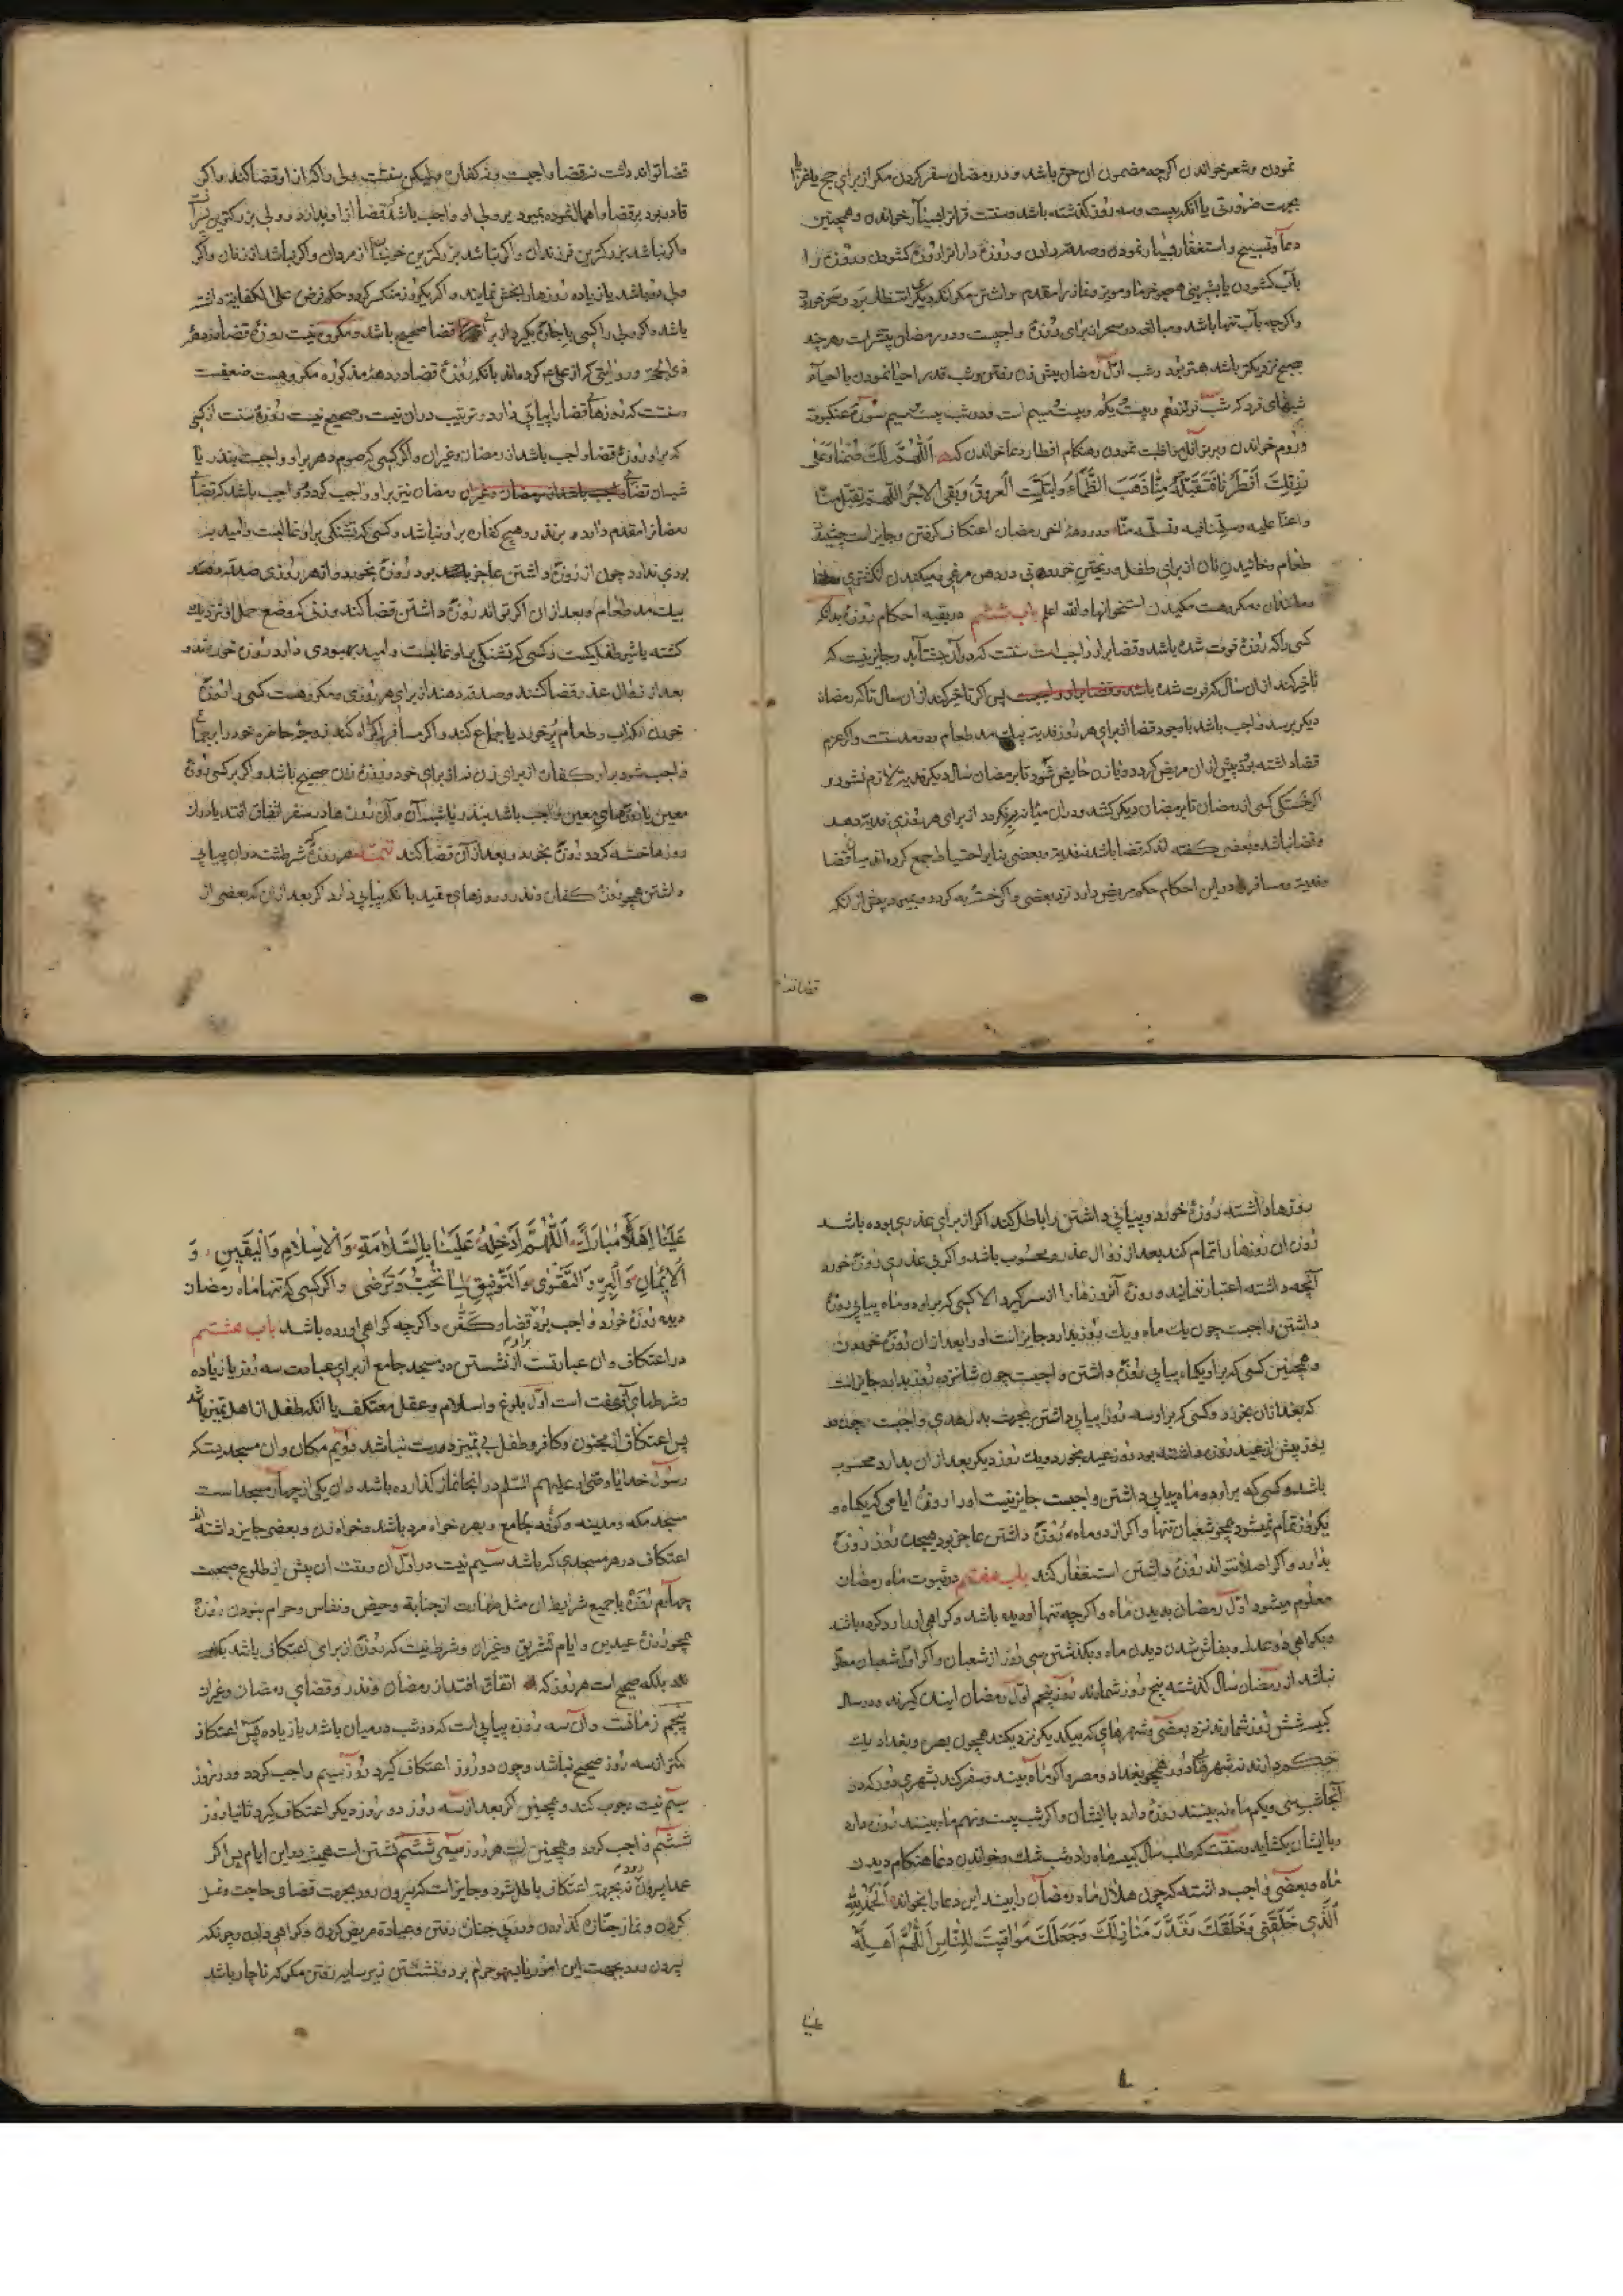 نمودن و شعر خواندن اگرچه مضمون ان حق باشد و در رمضان سفر کردن مکر از برای حج یا غزا یا
بجهت ضرورتی یا آنکه بیست و سه روز کذشته باشد و سنت قران بسیار خواندن و همچنین
دعا و تسبیح و استغفار بسیار نمودن و صدقه دادن و روزه داران را روزه کشودن و روزه را
بآب کشودن یا بشیرینی همچو خرما و مویز و نماز را مقدم داشتن مکر انکه دیکری انتظار برد و سحر خوردن
و اگرچه بآب تنها باشد و مبالغه در سحر از برای روزه واجبست و در رمضان بیشتر است و هرچند
بصبح نزدیکتر باشد بهتر بود و شب اول رمضان پیش زن رفتن و شب قدر احیا نمودن یا احیاء
شبهای فرد که شب نوزدهم و بیست یکم و بیست سیم است و در شب بیست سیم سورۀ عنکبوت
و روم خواندن و بر نوافل مواظبت نمودن و هنکام افطار دعا خواندن که اَللّهُمَّ لَكَ صُمْنَا وَعَلى
رِزْقِكَ اَفْطَرْنَا فَتَقَبَّلْهُ مِنَّا ذَهَبَ الظَّمَاءُ وَابْتَلَّتِ الْعُرُوقُ وَبَقِىَ الْاَجْرُ اللّهم تقبل منا
واعنا علیه وسلمنا فیه وتسلمه منا و در دهۀ اخر رمضان اعتکاف کرفتن و جایز است چشیدن
طعام و خائیدن نان از برای طفل و ریختن خوردنی در دهن مرغ و مکیدن انکشتری
و مانندان و مکروهست مکیدن استخوانها والله اعلم باب ششم در بقیه احکام روزه بدانکه
کسی را که روزۀ فوت شده باشد و قضا بر او واجبست سنتست که در ان شتابد و جایز نیست که
تاخیر کند از ان سال که فوت شده باشد و قضا بر او واجبست پس اکر تاخیر کند از ان سال تا که رمضان
دیکر برسد واجب باشد با وجود قضا از برای هر روز فدیه بیک مد طعام و دو مد سنتست و اکر عزم
قضا داشته بود و پیش از ان مریض کردد و یا زن حایض شود تا بر رمضان سال دیکر فدیه لازم نشود و
اکر خستکی کسی از رمضان تا بر رمضان دیکر کشد و در ان میانه به نکردد از برای هر روزی فدیه دهد
و قضا نباشد و بعضی کفته اند که قضا باشد نه فدیه و بعضی بنابر احتیاط جمع کرده اند میان قضا
و فدیه و مسافر در این احکام حکم مریض دارد نزد بعضی و اکر خسته به کردد و بمیرد پیش از انکه
قضا تواند
قضا تواند داشت نه قضا واجبست و نه کفاره ولیکن سنتست ولی را کز از او قضا کند و اکر
قادر بود بر قضا و اهمال نموده بمیرد بر ولی او واجب باشد که قضا از او بدارد و ولی بزرکترین پسر است
و اکر نباشد بزرکترین فرزندان و اکر نباشد بزرکترین خویشان از مردان و اکر نباشد از زنان و اکر
ولی دو باشد یا زیاده روزها را بخش نمایند و اکر یکروز منکسر کردد حکم فرض علی الکفایه داشته
باشد و اکر ولی کسی را باجاره بکیرد از برای قضا صحیح باشد و مکروه نیست روزۀ قضا در دهۀ
ذی الحجه و روایتی که از علی ع کرده اند بانکه روزۀ قضا در دهۀ مذکوره مکروهست ضعیفست
و سنتست که روزهای قضا را پیاپی دارد و ترتیب در ان نیست و صحیح نیست روزۀ سنت از کسی
که بر او روزۀ قضا واجب باشد از رمضان و غیر ان و اکر کسی که صوم دهر بر او واجبست بنذر یا
شبه ان قضای واجب باشد از رمضان و غیر ان رمضان نیز بر او واجب کردد واجب باشد که قضای
رمضان را مقدم دارد بر نذر و هیچ کفاره بر او نباشد و کسی که تشنکی بر او غالبست و امید به
بودی ندارد چون از روزه داشتن عاجز بود روزه بخورد و از هر روزی صدقه دهد
بیک مد طعام و بعد از ان اکر تواند روزه داشتن قضا کند و زنی که وضع حمل او نزدیک
کشته یا شیر طفلش کمست و کسی که تشنکی بر او غالبست و امید بهبودی دارد روزه خورند و
بعد از زوال عذر قضا کنند و صدقه دهند از برای هر روزی و مکروهست کسی را که روزه
خورد از آنکه آب و طعام پر خورد یا جماع کند و اکر مسافر اکراه کند زوجۀ حاضرۀ خود را بجماع
واجب شود بر او کفاره از برای زن نه از برای خود و روزۀ زن صحیح باشد و اکر بر کسی روزۀ
معین یا روزهای معین واجب باشد بنذر یا شبه آن و آن روزها در سفر اتفاق افتد یا در ان
روزها خسته کردد روزه بخورد و بعد از آن قضا کند تتمه هر روزۀ که شرطست در ان پیاپی
داشتن همچو روزۀ کفاره و نذر و روزهای مقید بانکه پیاپی دارد اکر بعد از ان که بعضی از
روزها داشته روزه خورد و پیاپی داشتن را باطل کند اکر از برای عذری بوده باشد
روزه ان روزها را تمام کند بعد از زوال عذر و محسوب باشد و اکر بی عذری روزه خورد
آنچه داشته اعتبار ننمایند و روزۀ آنروزها را از سر کیرد الا کسی که بر او دو ماه پیاپی روزه
داشتن واجبست چون یک ماه و یک روز بدارد جایز است او را بعد از ان روزه خوردن
و همچنین کسی که بر او یکماه پیاپی روزه داشتن واجبست چون پانزده روز بدارد جایز است
که بعد از ان بخورد و کسی که بر او سه روز پیاپی داشتن بجهت بدل هدی واجبست چون دو
روز پیش از عید روزه داشته بود روز عید بخورد و یک روز دیکر بعد از ان بدارد محسوب
باشد و کسی که بر او دو ماه پیاپی داشتن واجبست جایز نیست او را روزۀ ایامی که یکماه و
یکروز تمام نمیشود همچو شعبان تنها و اکر از دو ماه روزه داشتن عاجز بود هیجده روز روزه
بدارد و اکر اصلا نتواند روزه داشتن استغفار کند باب هفتم در ثبوت ماه رمضان
معلوم میشود اول رمضان بدیدن ماه و اکرچه تنها او دیده باشد و کواهی او را رد کرده باشند
و بکواهی دو عدل و بفاش شدن دیدن ماه و بکذشتن سی روز از شعبان و اکر اول شعبان معلوم
نباشد از رمضان سال کذشته پنج روز شمارند روز پنجم اول رمضان ایندن کیرند و در سال
کبیسه شش روز شمارند نزد بعضی و شهرهای که بیکدیکر نزدیکند همچون بصره و بغداد یک
حکم دارند نه شهرهای دور همچو بغداد و مصر و اکر ماه بیند و سفر کند بشهری دور که در
آنجا شب سی و یکم ماه نه بینند روزه دارد با ایشان و اکر شب بیست و نهم ماه بینند روزه دارد
و با ایشان بکشاید و سنتست که طلب سال کبیسه ماه را در شب شک و خواندن دعا هنکام دیدن
ماه و بعضی واجب داشته که چون هلال ماه رمضان را بیند این دعا را بخواند اَلْحَمْدُ لِلّهِ
الَّذى خَلَقَنى وَخَلَقَكَ وَقَدَّرَ مَنَازِلَكَ وَجَعَلَكَ مَوَاقيتَ لِلنَّاسِ اَللّهُمَّ اَهِلَّهُ
علینا
عَلَيْنَا اِهْلَالًا مُبَارَكًا اَللّهُمَّ اَدْخِلْهُ عَلَيْنَا بِالسَّلَامَةِ وَالْاِسْلَامِ وَالْيَقينِ وَ
الْاِيمَانِ وَالْبِرِّ وَالتَّقْوى وَالتَّوْفيقِ لِمَا تُحِبُّ وَتَرْضى و اکر کسی که تنها ماه رمضان
دیده روزه خورد واجب بود بر او قضا و کفاره و اکرچه کواهی او رد شده باشد باب هشتم
در اعتکاف و ان عبارتست از نشستن در مسجد جامع از برای عبادت سه روز یا زیاده
و شرطهای آن هفت است اول بلوغ و اسلام و عقل معتکف یا آنکه طفل از اهل تمیز باشد
پس اعتکاف از مجنون و کافر و طفل بی تمیز درست نباشد دویم مکان و ان مسجدیست که
رسول خدا یا وصی او علیهم السلم در انجا نماز کذارده باشد و ان یکی از چهار مسجد است
مسجد مکه و مدینه و کوفه جامع و بصره خواه مرد باشد و خواه زن و بعضی جایز داشته اند
اعتکاف در هر مسجدی که باشد سیم نیت در اول آن و وقت ان پیش از طلوع صبحست
چهارم روزه با جمیع شرایط ان مثل طهارت از جنابة و حیض و نفاس و حرام نبودن روزه
همچو روزۀ عیدین و ایام تشریق و غیر ان و شرط نیست که روزه از برای اعتکاف باشد
بلکه صحیح است هر روزۀ که اتفاق افتد از رمضان و نذر و قضای رمضان و غیر ان
پنجم زمانست و آن سه روزه پیاپی است که دو شب در میان باشد یا زیاده پس اعتکاف
کمتر از سه روز صحیح نباشد و چون دو روز اعتکاف کیرد روز سیم واجب کردد و در روز
سیم نیت وجوب کند و همچنین اکر بعد از سه روز دو روز دیکر اعتکاف کیرد تا نیا روز
ششم واجب کردد و همچنین است هر روز سیمی ششم نشستن است همیشه در این ایام پس اکر
عمدا بیرون رود نه بجهة اعتکاف باطل شود و جایز است که بیرون رود بجهت قضای حاجت و غسل
کردن و نماز جنازه کذاردن و در پی جنازه رفتن و عیادة مریض کردن و کواهی دادن و چونکه
بیرون رود بجهت این امور یا بسهو حرام بود نشستن و زیر سایه رفتن مکر که ناچار باشد